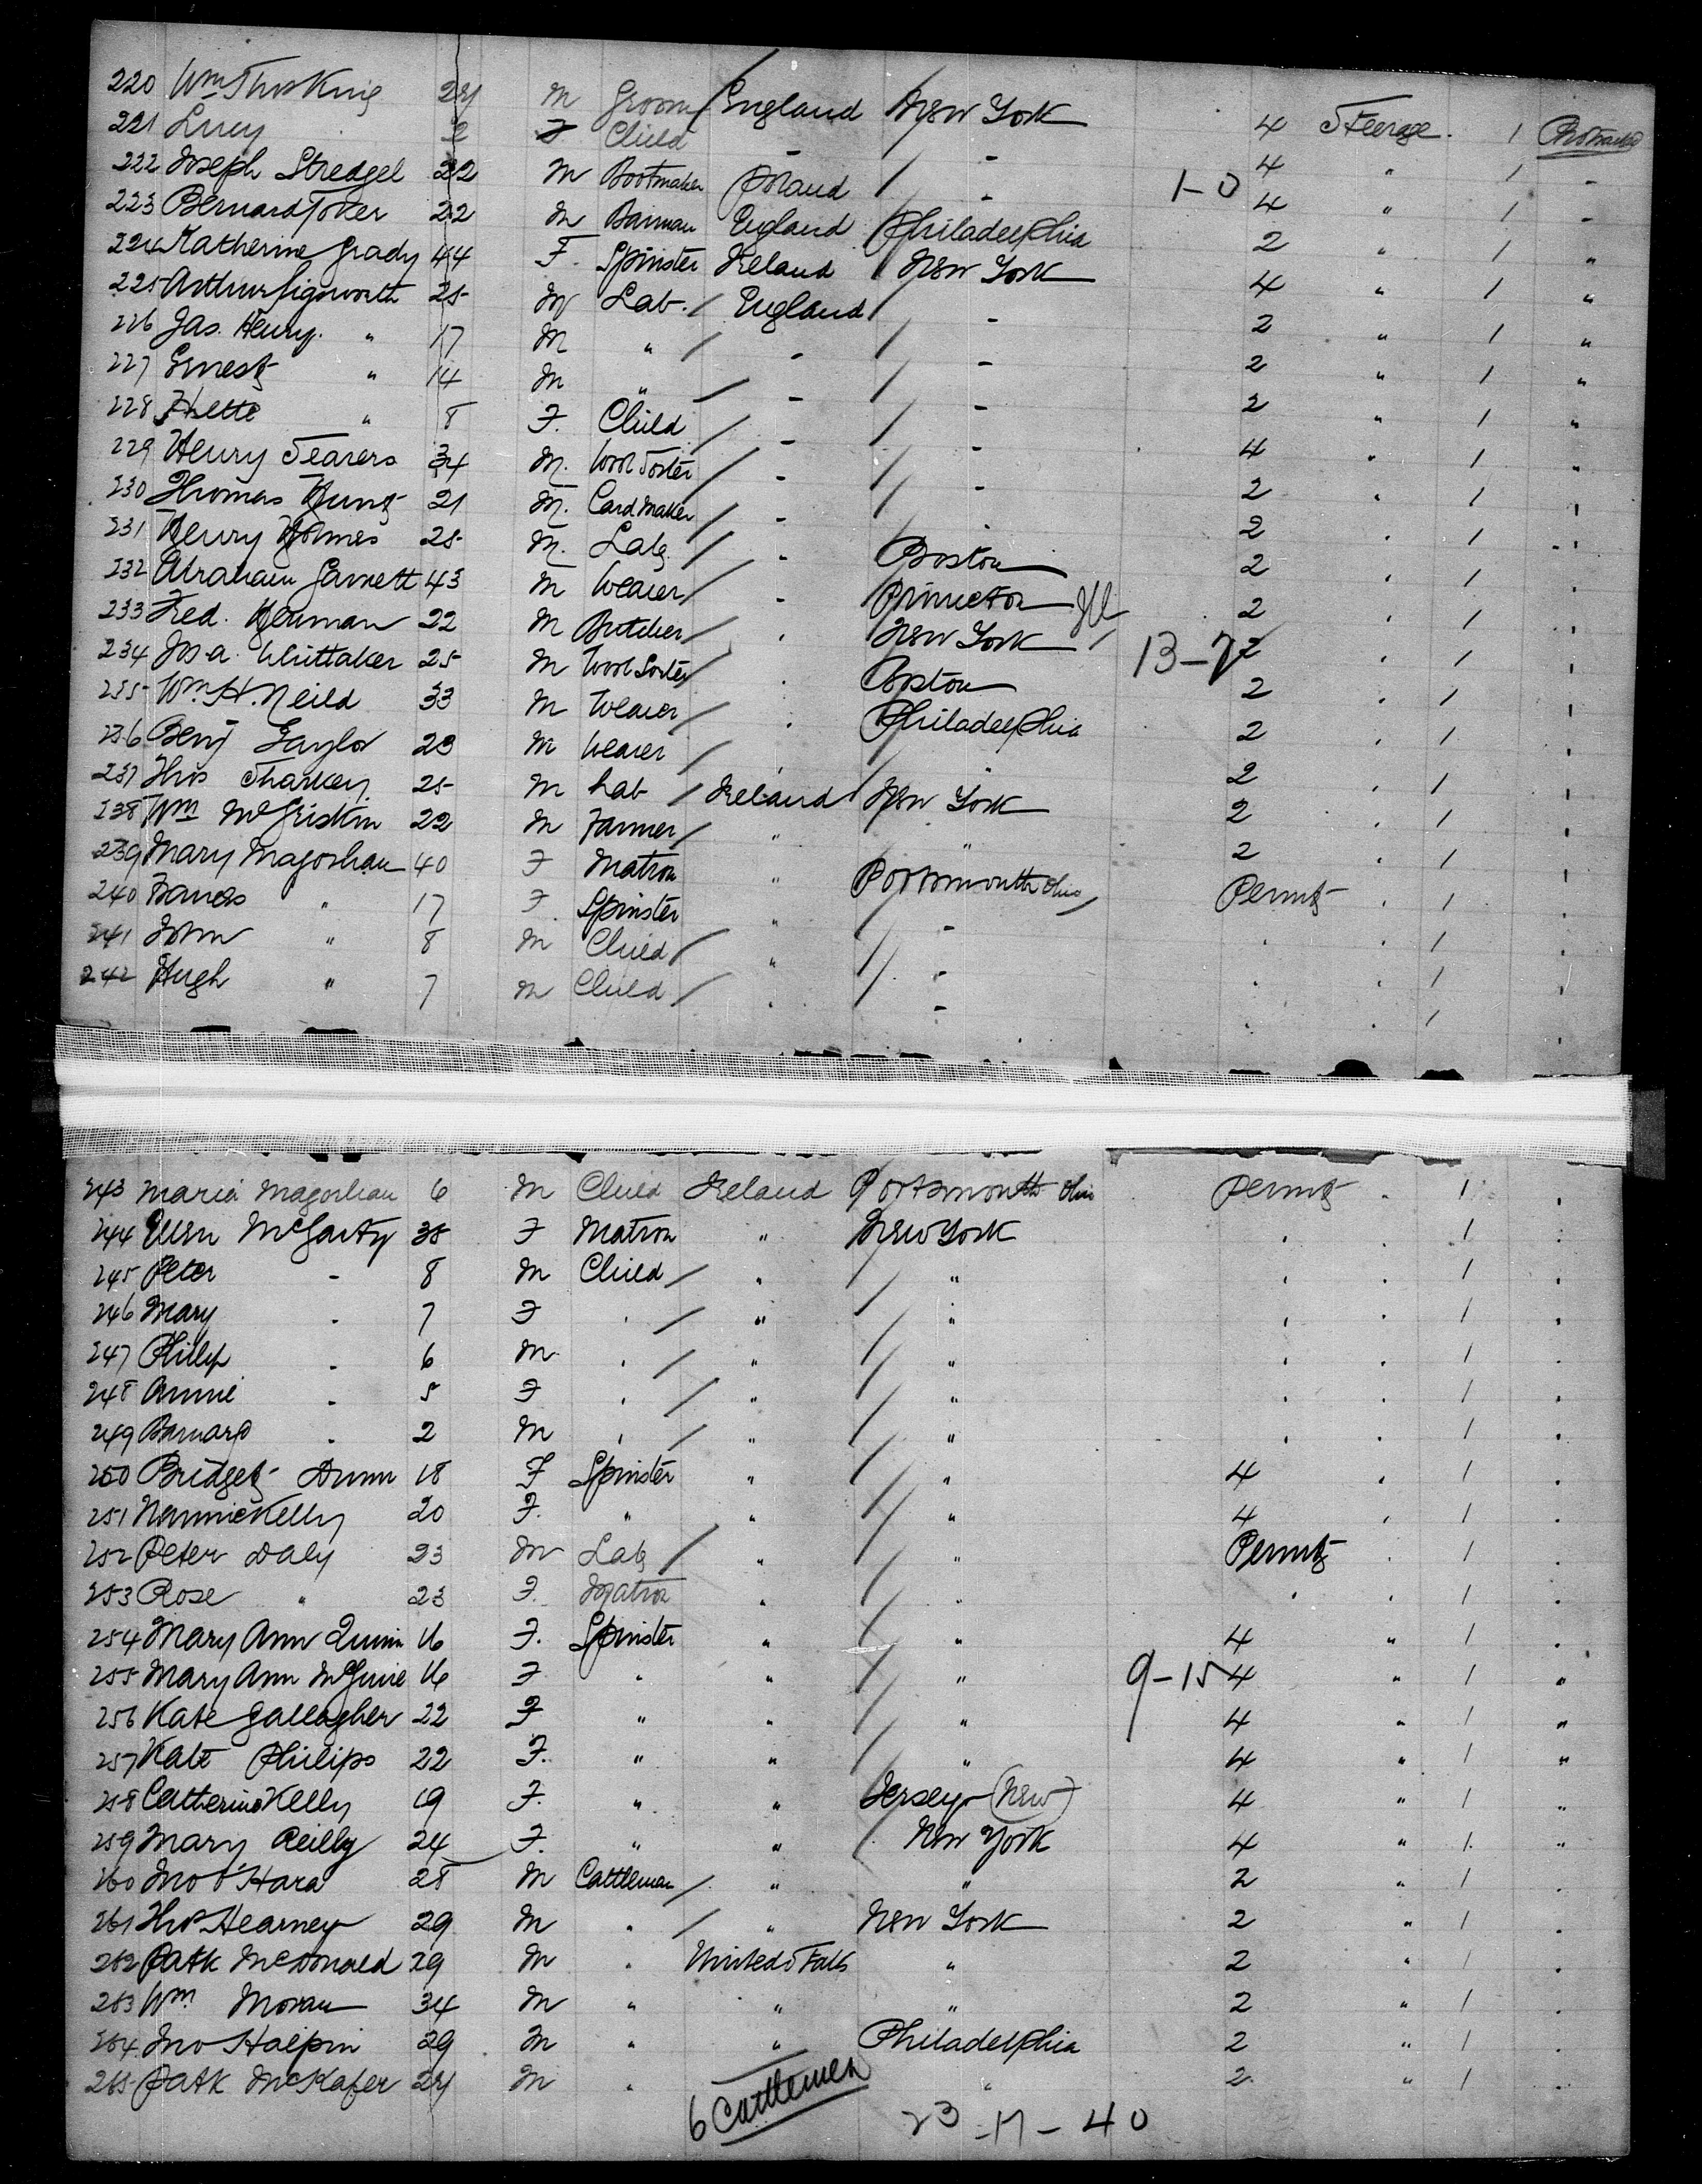 220 Wm Thos King 24 M Groom / England / New York 4 Steerage. 1
221 Lucy 2 F Child - - 4 " 1 -
222 Joseph Stredgel 22 M Bootmaker Poland / - 1-0 4 " 1 -
223 Bernard Toker 22 M Barman England Philadelphia 2 " 1 "
224 Katherine Grady 44 F. Spinster Ireland / New York 4 " 1 "
225 Arthur Sigsworth 25 M Lab. / England / - 2 " 1 "
226 Jas. Henry. " 17 M " / - / - 2 " 1 "
227 Ernest " 14 M " / - / - 2 " 1 "
228 " 8 F. Child / - / - 4 " 1 "
229 Henry Fearers 34 M. Wool Sorter / - / - 2 " 1 "
230 Thomas Hunt 21 M. Card Maker / - 2 " 1 "
231 Henry Holmes 25 M. Lab / - Boston 2 " 1 "
232 Abraham Garnett 43 M Weaver / - Princeton Ill 2 " 1 "
233 Fred. Herman 22 M Butcher / " New York / 13-7 2 " 1 "
234 Jos. a. Whittaker 25 M Wool Sorter / " Boston 2 " 1 "
235 Wm H. Neild 33 M Weaver / " Philadelphia 2 " 1 "
236 Benj Taylor 23 M Weaver / " / " 2 " 1 "
237 Thos Sharkey. 25 M Lab / Ireland / New York 2 " 1 "
238 Wm McGriskin 22 M Farmer / " " 2 " 1 "
239 Mary Magorhan 40 F Matron " Portsmouth Ohio / Permit " 1 "
240 " 17 F. Spinster " / - " " 1 "
241 John " 8 M Child / " / - " " 1 "
242 Hugh " 7 M Child / " - " " 1 "
243 Maria Magorhan 6 M Child Ireland Portsmouth Ohio Permit " 1 "
244 Ellen McGarty 38 F Matron " New York " " 1 "
245 Peter - 8 M Child / " / " " " 1 "
246 Mary - 7 F " / " / " " " 1 "
247 Philip - 6 M " / " / " " " 1 "
248 Annie - 5 F " / " / " " " 1 "
249 Barnard - 2 M " / " / " " " 1 "
250 Bridget Dunn 18 F Spinster " / " 4 " 1 "
251 Nannie Kelly 20 F. " " / " 4 " 1 "
252 Peter Daly 23 M Lab / " / " Permit " 1 "
253 Rose " 23 F. Matron " / " " " 1 "
254 Mary Ann Quinn 16 F. Spinster " / " 4 " 1 "
255 Mary Ann McGuire 16 F " " / " 9-15 4 " 1 "
256 Kate Gallagher 22 F " " / " 4 " 1 "
257 Kate Philips 22 F. " " / " 4 " 1 "
258 Catherine Kelly 19 F. " " Jersey (New) 4 " 1 "
259 Mary Reilly 24 F. " " / New York 4 " 1 "
260 Jno O'Hara 28 M Cattleman / " " 2 " 1 "
261 Thos Hearney 29 M " / " New York 2 " 1 "
262 Patk McDonald 29 M " United States " 2 " 1 "
263 Wm Moran 34 M " " " 2 " 1 "
264 Jno Halpin 29 M " " Philadelphia 2 " 1 "
265 Patk 24 M " " 2 " 1 "
6 Cattlemen 23-17-40